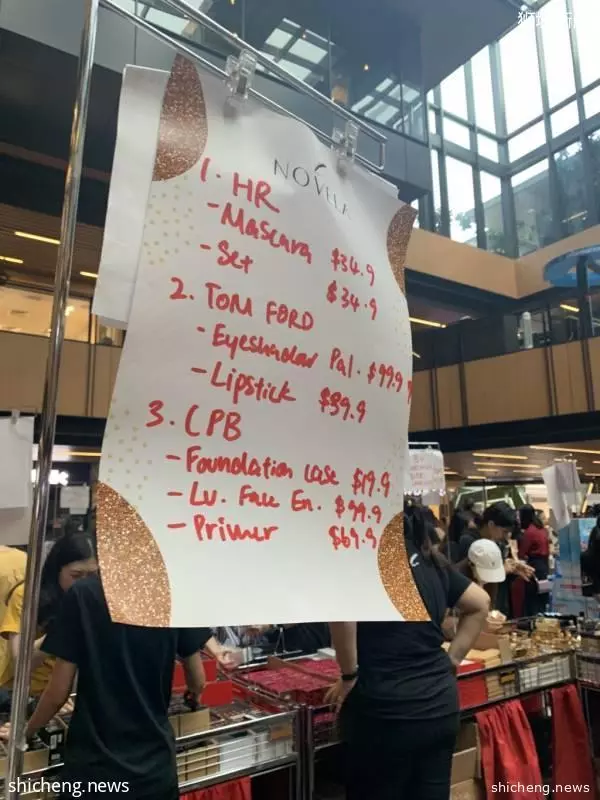 NOVELA
1. HR
- Mascara $34.9
- Set $34.9
2. TOM FORD
- Eyeshadow Pal. $99.9
- Lipstick $39.9
3. CPB
- Foundation case $19.9
- Lv. Fnu En. $99.9
- Primer $69.9
shicheng.news
shicheng.news